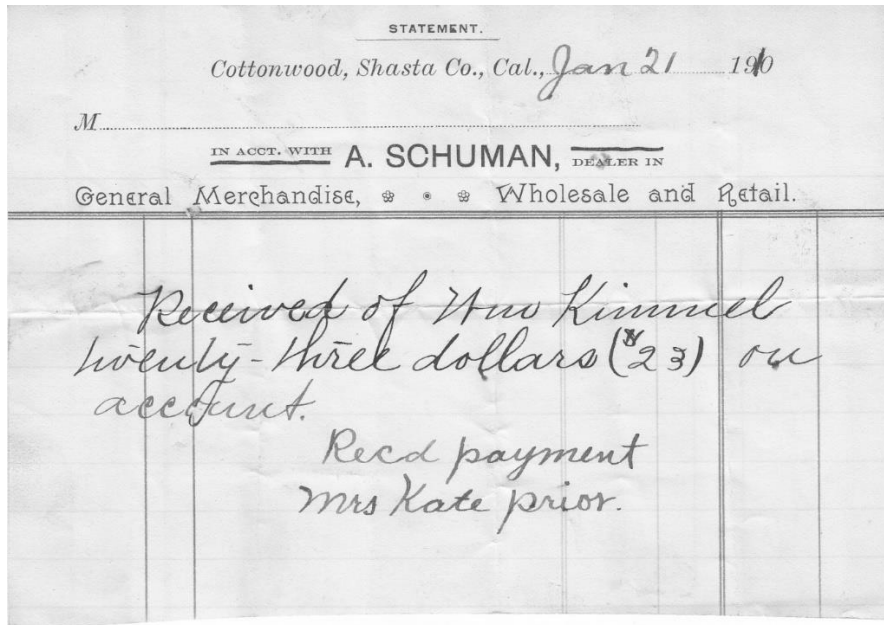 STATEMENT.
Cottonwood, Shasta Co., Cal., Jan 21 1910
M
IN ACCT. WITH A. SCHUMAN, DEALER IN
General Merchandise, Wholesale and Retail.
Received of Wm Kimmel
twenty-three dollars ($23) on
account.
Recd payment
Mrs Kate Prior.